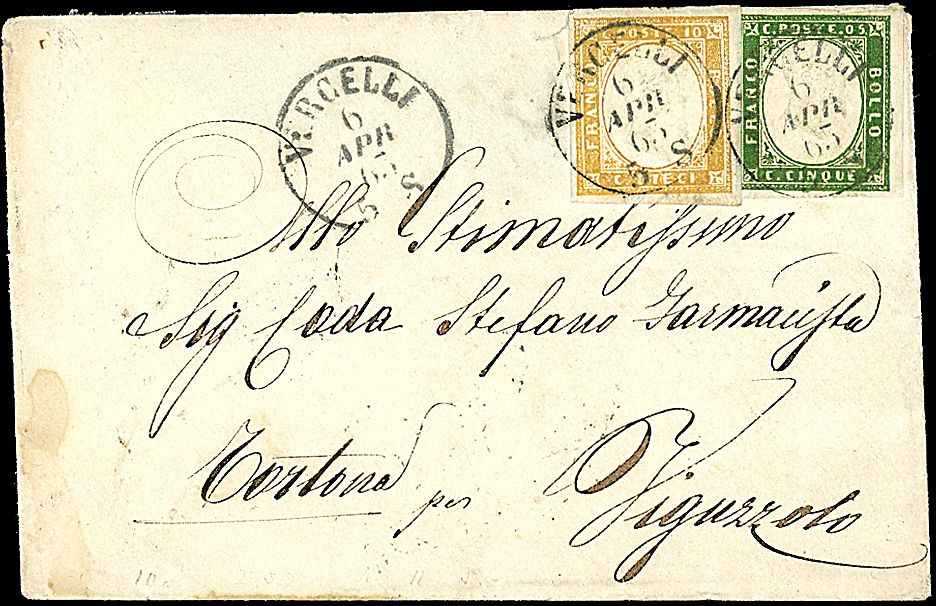 VERCELLI
6
APR
63
5 S
POSTE 10
FRANCO
C. DIECI
VERCELLI
6
APR
63
5 S
C. POSTE. 05
FRANCO
BOLLO
C. CINQUE
VERCELLI
6
APR
63
Allo Stimatissimo
Sig Coda Stefano Farmacista
Tortona per Viguzzolo